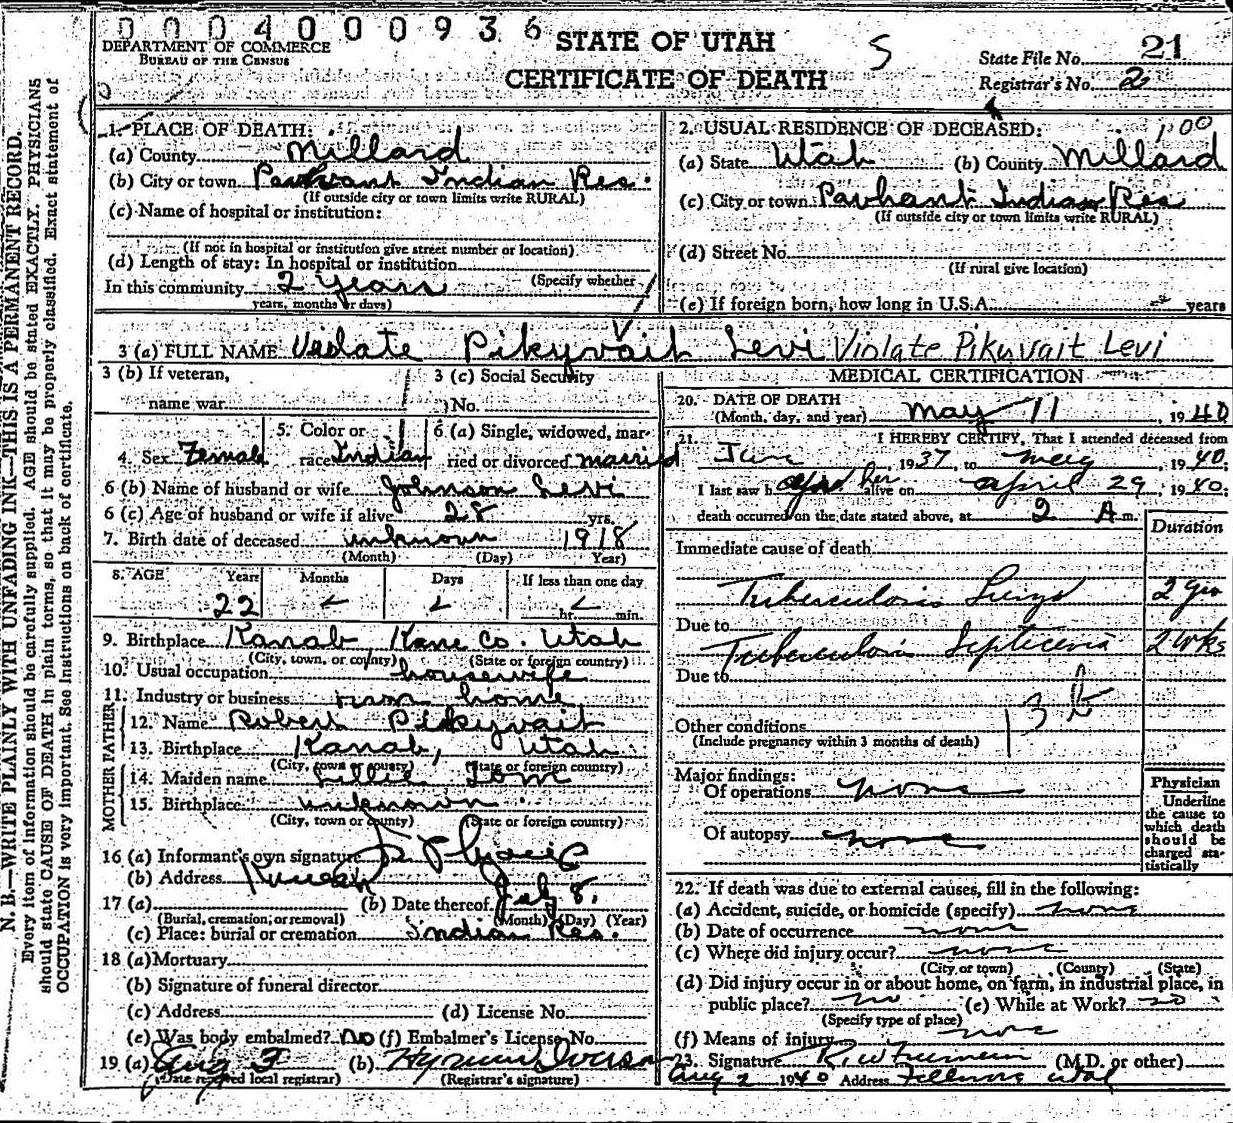 0004000936
DEPARTMENT OF COMMERCE
BUREAU OF THE CENSUS
STATE OF UTAH
CERTIFICATE OF DEATH
S
State File No. 21
Registrar's No. 2
N. B.—WRITE PLAINLY WITH UNFADING INK—THIS IS A PERMANENT RECORD.
Every item of information should be carefully supplied. AGE should be stated EXACTLY. PHYSICIANS
should state CAUSE OF DEATH in plain terms, so that it may be properly classified. Exact statement of
OCCUPATION is very important. See instructions on back of certificate.
1. PLACE OF DEATH:
(a) County Millard
(b) City or town Pavhant Indian Res.
(If outside city or town limits write RURAL)
(c) Name of hospital or institution:
(If not in hospital or institution give street number or location)
(d) Length of stay: In hospital or institution
(Specify whether
In this community 2 years
years, months or days)
2. USUAL RESIDENCE OF DECEASED: 1.00
(a) State Utah (b) County Millard
(c) City or town Pavhant Indian Res
(If outside city or town limits write RURAL)
(d) Street No.
(If rural give location)
(e) If foreign born, how long in U.S.A. years
3 (a) FULL NAME Violate Pikyvait Levi Violate Pikuvait Levi
3 (b) If veteran,
name war
3 (c) Social Security
No.
4. Sex Female
5. Color or
race Indian
6 (a) Single, widowed, mar-
ried or divorced married
6 (b) Name of husband or wife Johnson Levi
6 (c) Age of husband or wife if alive 28 yrs.
7. Birth date of deceased unknown 1918
(Month) (Day) Year)
8. AGE Years Months Days If less than one day
22 hr. min.
9. Birthplace Kanab Kane Co. Utah
(City, town, or county) (State or foreign country)
10. Usual occupation housewife
11. Industry or business own home
FATHER
12. Name Robert Pikyvait
13. Birthplace Kanab, Utah
(City, town or county) (State or foreign country)
MOTHER
14. Maiden name Lillie Tom
15. Birthplace unknown
(City, town or county) (State or foreign country)
16 (a) Informant's own signature
(b) Address
17 (a) (b) Date thereof 8.
(Burial, cremation, or removal) (Month) (Day) (Year)
(c) Place: burial or cremation Indian Res.
18 (a) Mortuary
(b) Signature of funeral director
(c) Address (d) License No.
(e) Was body embalmed? No (f) Embalmer's License No.
19 (a) Aug 3 (b) Hyrum Iverson
(Date received local registrar) (Registrar's signature)
MEDICAL CERTIFICATION
20. DATE OF DEATH
(Month, day, and year) May 11, 1940
21. I HEREBY CERTIFY, That I attended deceased from
June, 1937, to May, 1940;
I last saw h her alive on April 29, 1940;
death occurred on the date stated above, at 2 A m.
Duration
Immediate cause of death
Tuberculosis Lungs 2 yrs
Due to
Tuberculosis Septicemia 2 wks
Due to
13 b
Other conditions
(Include pregnancy within 3 months of death)
Major findings:
Of operations none
Of autopsy none
Physician
Underline
the cause to
which death
should be
charged sta-
tistically
22. If death was due to external causes, fill in the following:
(a) Accident, suicide, or homicide (specify) none
(b) Date of occurrence none
(c) Where did injury occur? none
(City or town) (County) (State)
(d) Did injury occur in or about home, on farm, in industrial place, in
public place? no (e) While at Work? no
(Specify type of place)
(f) Means of injury none
23. Signature (M.D. or other)
Aug 2 1940 Address Fillmore Utah